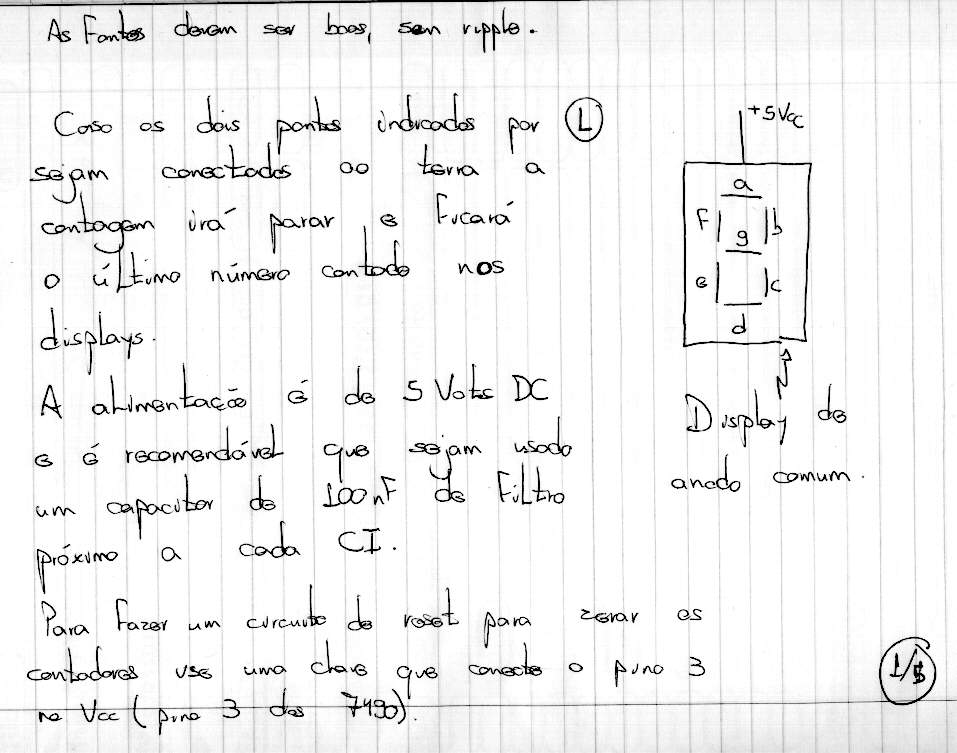 As Fontes devem ser boas, sem ripple.
Caso os dois pontos indicados por (L)
sejam conectados ao terra a
contagem irá parar e Ficará
o último número contado nos
displays.
A alimentação é de 5 Volts DC
e é recomendável que sejam usado
um capacitor de 100nF de Filtro
próximo a cada CI.
Para Fazer um circuito de reset para zerar os
contadores use uma chave que conecte o pino 3
no Vcc (pino 3 dos 7490).
+5Vcc
a
F b
g
e c
d
Display de
anodo comum.
1/5